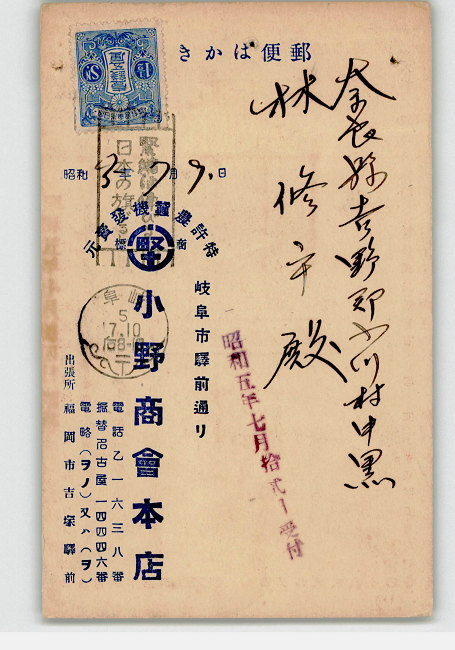 郵便はかき
奈良縣吉野郡小川村中黒
林修市殿
昭和五年七月拾弐日受付
岐阜市驛前通り
特許農蠶機發賣元
商標
堅
小野商會本店
電話乙一六三八番
振替名古屋一四四四六番
電略(ヲノ)又ハ(ヲ)
出張所 福岡市吉塚驛前
昭和5年7月9日
日本の旗
岐阜
5
7.10